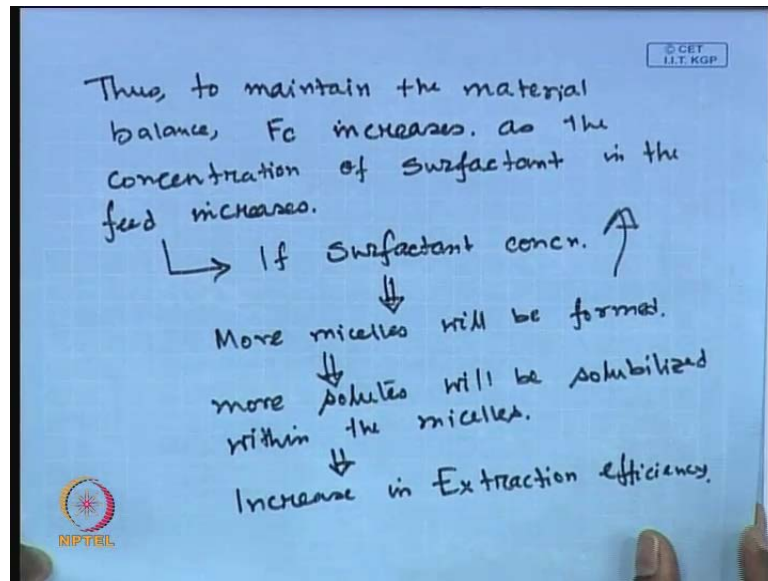 © CET
I.I.T. KGP
Thus, to maintain the material
balance, Fc increases. as the
concentration of surfactant in the
feed increases.
If surfactant concn. ↑
⇓
More micelles will be formed.
⇓
more solutes will be solubilized
within the micelles.
⇓
Increase in Extraction efficiency.
NPTEL